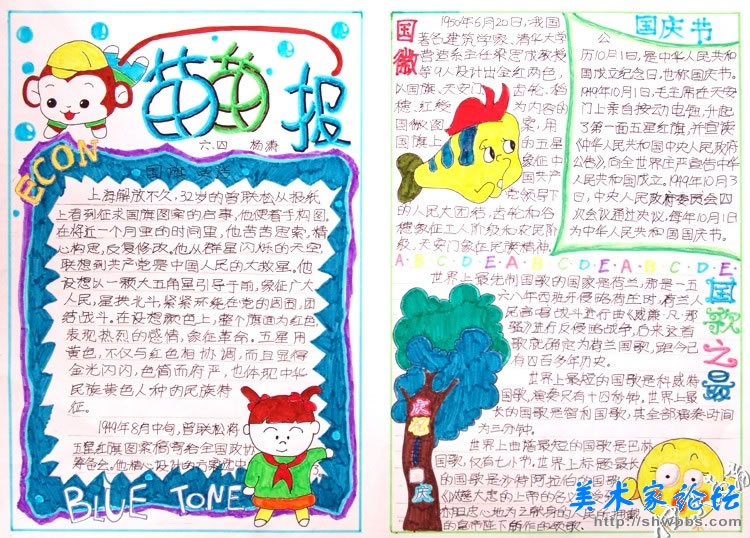 苗苗报
六.四 杨
ECON
上海解放不久,32岁的曾联松从报纸
上看到征求国旗图案的启事,他便着手构图。
在将近一个月里的时间里,他苦苦思索,精
心构思,反复修改。他从群星闪烁的天空,
联想到共产党是中国人民的大救星。他
设想以一颗大五角星引导于前,象征广大
人民,星拱北斗,紧紧环绕在党的周围,团
结战斗。在设想颜色上,整个旗面为红色,
表现热烈的感情,象征革命。五星用
黄色,不仅与红色相协调,而且显得
金光闪闪,色简而庄严,也体现中华
民族黄色人种的民族特
征。
1949年8月中旬,曾联松将
五星红旗图案信寄给全国政协
筹备会。他精心设计的方案选中
BLUE TONE
国徽
1950年6月20日,我国
著名建筑学家、清华大学
营造系主任梁思成教授
等9人设计出金红两色,
以国旗、天安门、齿轮、稻
穗、红绶为内容的
国徽图案,用
国旗上的五星
象征中国共产
党领导下
的人民大团结,齿轮和谷
穗象征工人阶级和农民阶
级,天安门象征民族精神。
国庆节
公
历10月1日,是中华人民共和
国成立纪念日,也称国庆日。
1949年10月1日,毛主席在天安
门上亲自按动电钮,升起
了第一面五星红旗,并宣读
《中华人民共和国中央人民政府
公告》,向全世界庄严宣告中华
人民共和国成立。1949年10月3
日,中央人民政府委员会四
次会议通过决议,每年10月1日
为中华人民共和国国庆节。
A·B·C·D·E·A·B·C·D·E·A·B·C·D·E
国歌之最
世界上最先制国歌的国家是荷兰,那是一五
六八年西班牙侵略荷兰时,荷兰人
民高唱战斗进行曲《威廉·凡·那
骚》进行反侵略战争,自来这首
歌就确定为荷兰国歌,距今已
有四百多年历史。
世界上最短的国歌是科威特
国歌,演奏只有十四秒钟。世界上最
长的国歌是智利国歌,其全部演奏时间
为三分钟。
世界上曲谱最短的国歌是巴林
国歌,仅有七小节。世界上标题最长
的国歌是沙特阿拉伯的国歌
美术家论坛
http://shwbbs.com